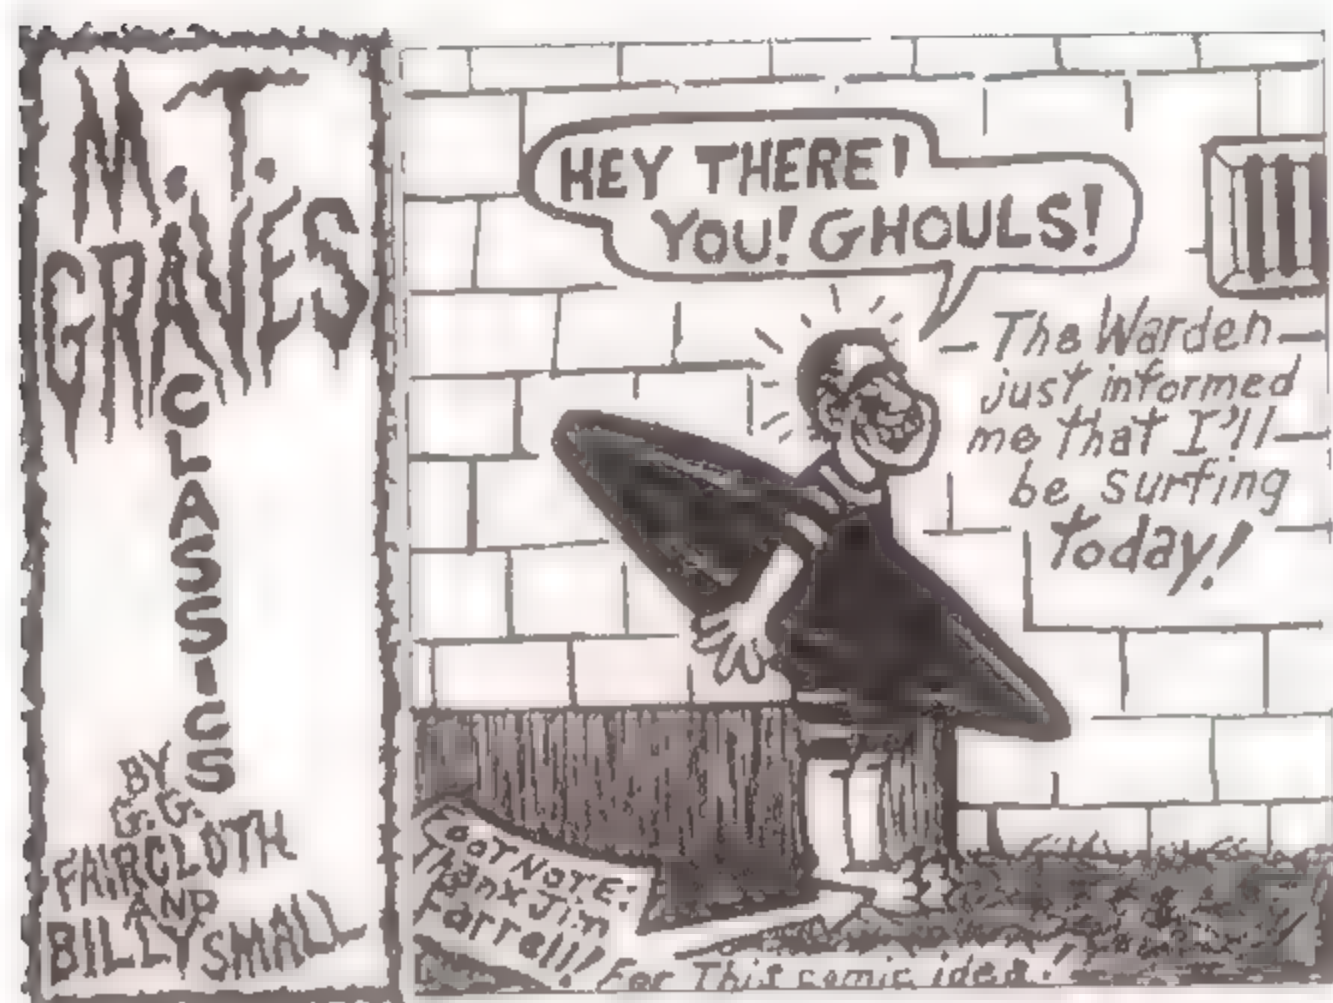 M.T.
GRAVES
CLASSICS
BY
G.G.
FAIRCLOTH
AND
BILLY SMALL
HEY THERE!
YOU! GHOULS!
The Warden
just informed
me that I'll
be surfing
Today!
FOOTNOTE:
Thanx Jim
Farrell!
For This comic idea!